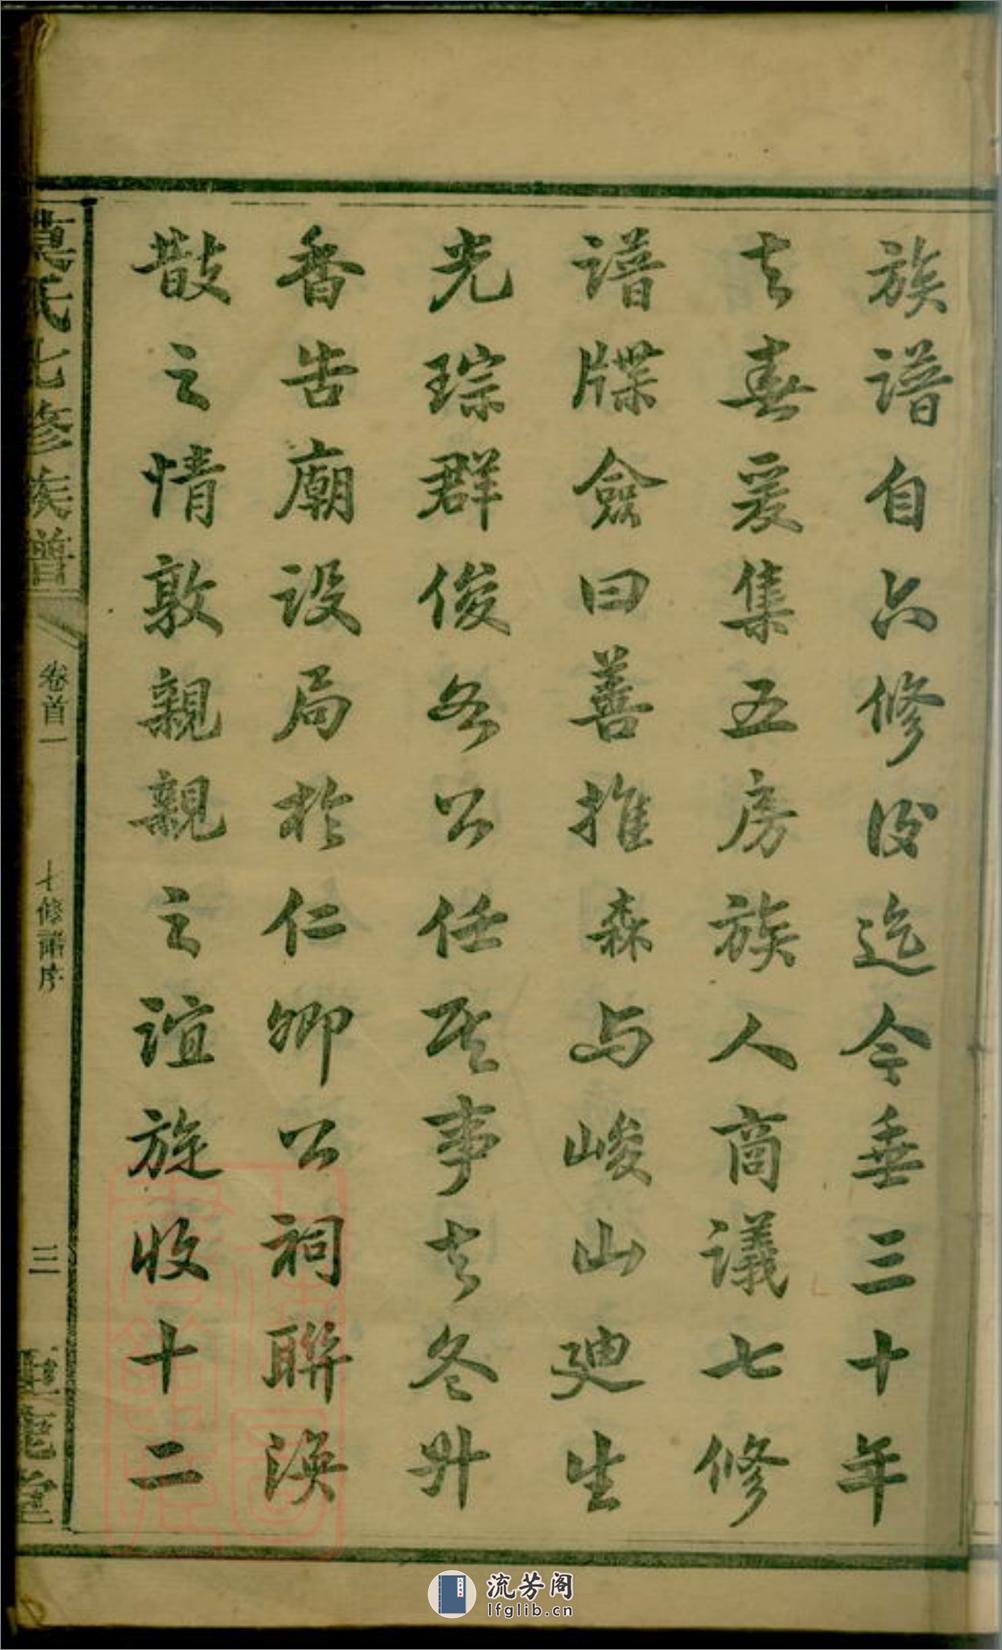 族譜自六修後迄今垂三十年
去春爰集五房族人商議七修
譜牒僉曰善推森与峻山廸生
光琮群俊各公任其事去冬升
香告廟设局於仁卿公祠聯渙
散之情敦親親之誼旋收十二
氏七修族譜
卷首一
七修譜序
三
堂
流芳阁
lfglib.cn